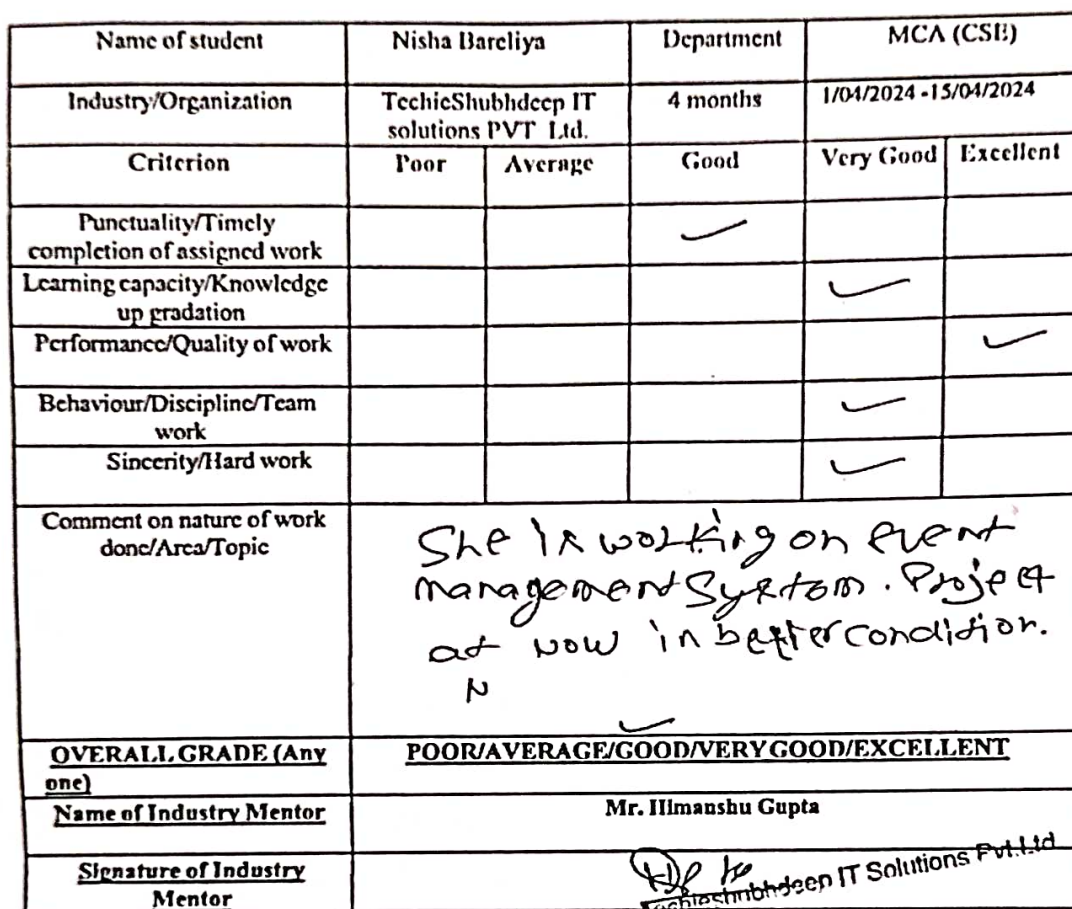 Name of student Nisha Bareliya Department MCA (CSE)
Industry/Organization TechieShubhdeep IT 4 months 1/04/2024 -15/04/2024
solutions PVT Ltd.
Criterion Poor Average Good Very Good Excellent
Punctuality/Timely
completion of assigned work
Learning capacity/Knowledge
up gradation
Performance/Quality of work
Behaviour/Discipline/Team
work
Sincerity/Hard work
Comment on nature of work
done/Area/Topic
She is working on event
management System. Project
at now in better condition.
N
OVERALL GRADE (Any
one)
POOR/AVERAGE/GOOD/VERY GOOD/EXCELLENT
Name of Industry Mentor Mr. Himanshu Gupta
Signature of Industry
Mentor
Techieshubhdeep IT Solutions Pvt.Ltd